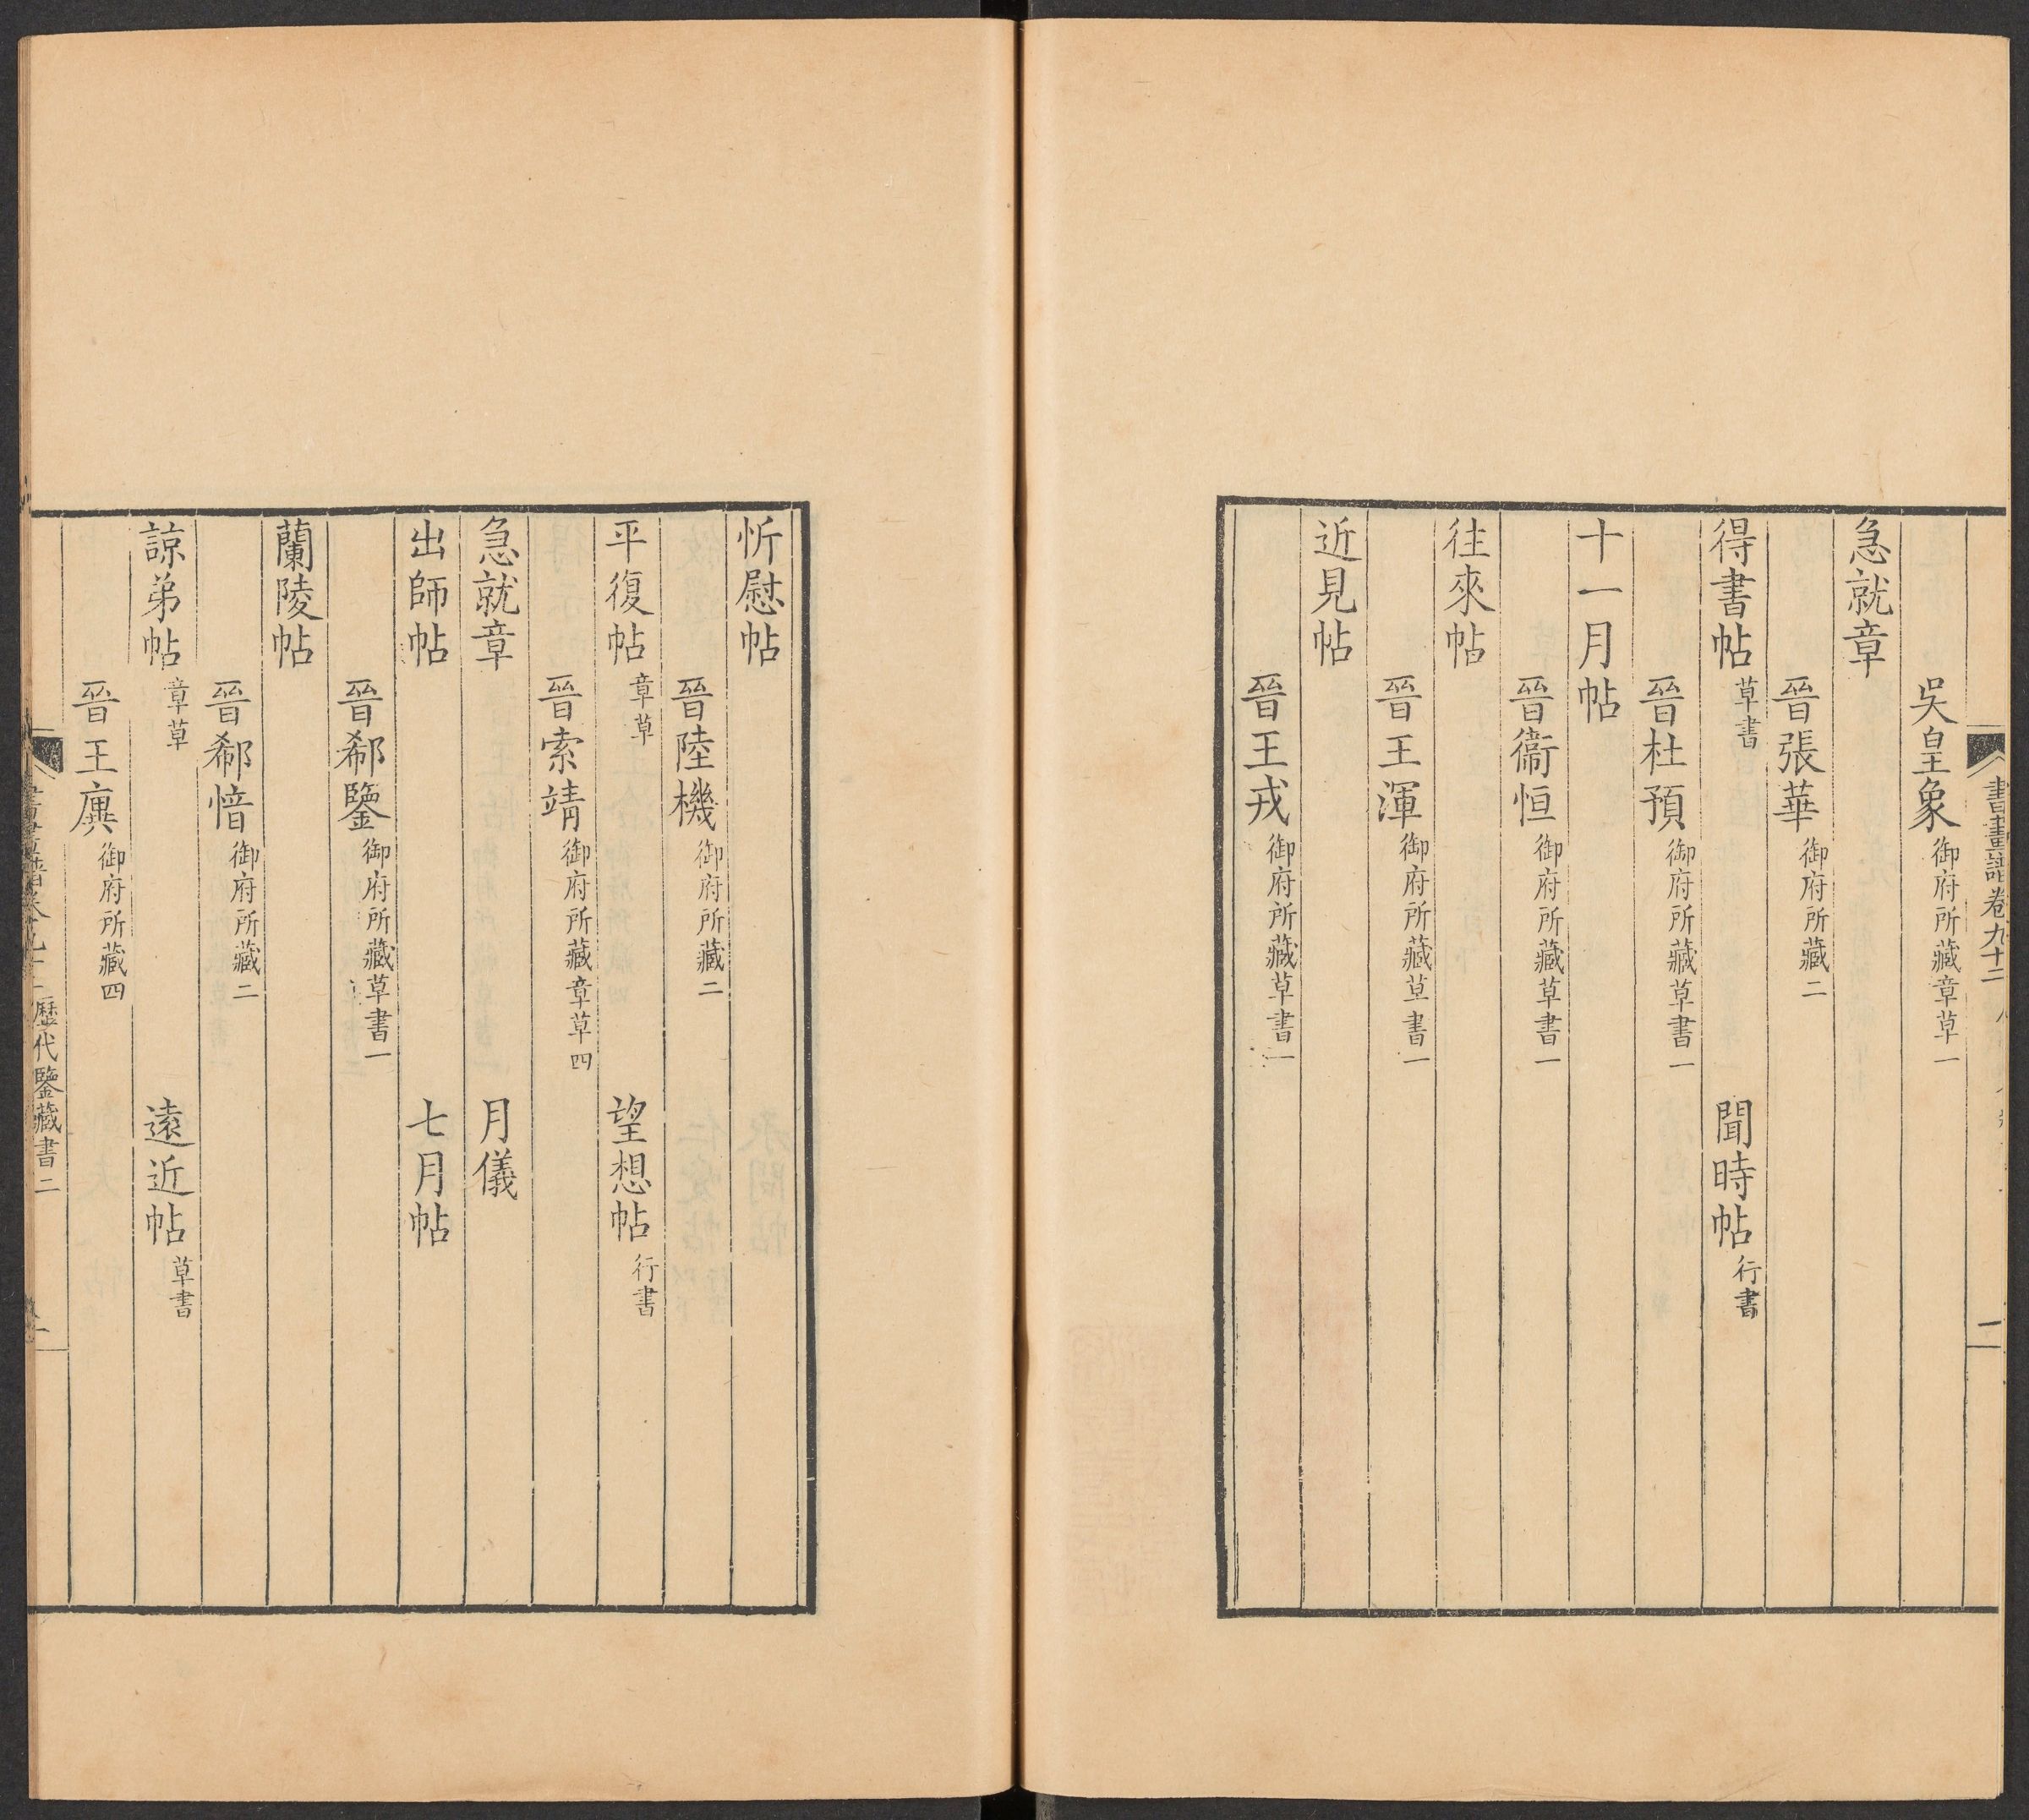 書畫譜卷九十二
二
吳皇象御府所藏章草一
急就章
晉張華御府所藏二
得書帖草書 聞時帖行書
晉杜預御府所藏草書一
十一月帖
晉衞恒御府所藏草書一
往來帖
晉王渾御府所藏草書一
近見帖
晉王戎御府所藏草書一
忻慰帖
晉陸機御府所藏二
平復帖章草 望想帖行書
晉索靖御府所藏章草四
急就章 月儀
出師帖 七月帖
晉郗鑒御府所藏草書一
蘭陵帖
晉郗愔御府所藏二
諒弟帖章草 遠近帖草書
晉王廙御府所藏四
歷代鑒藏書二